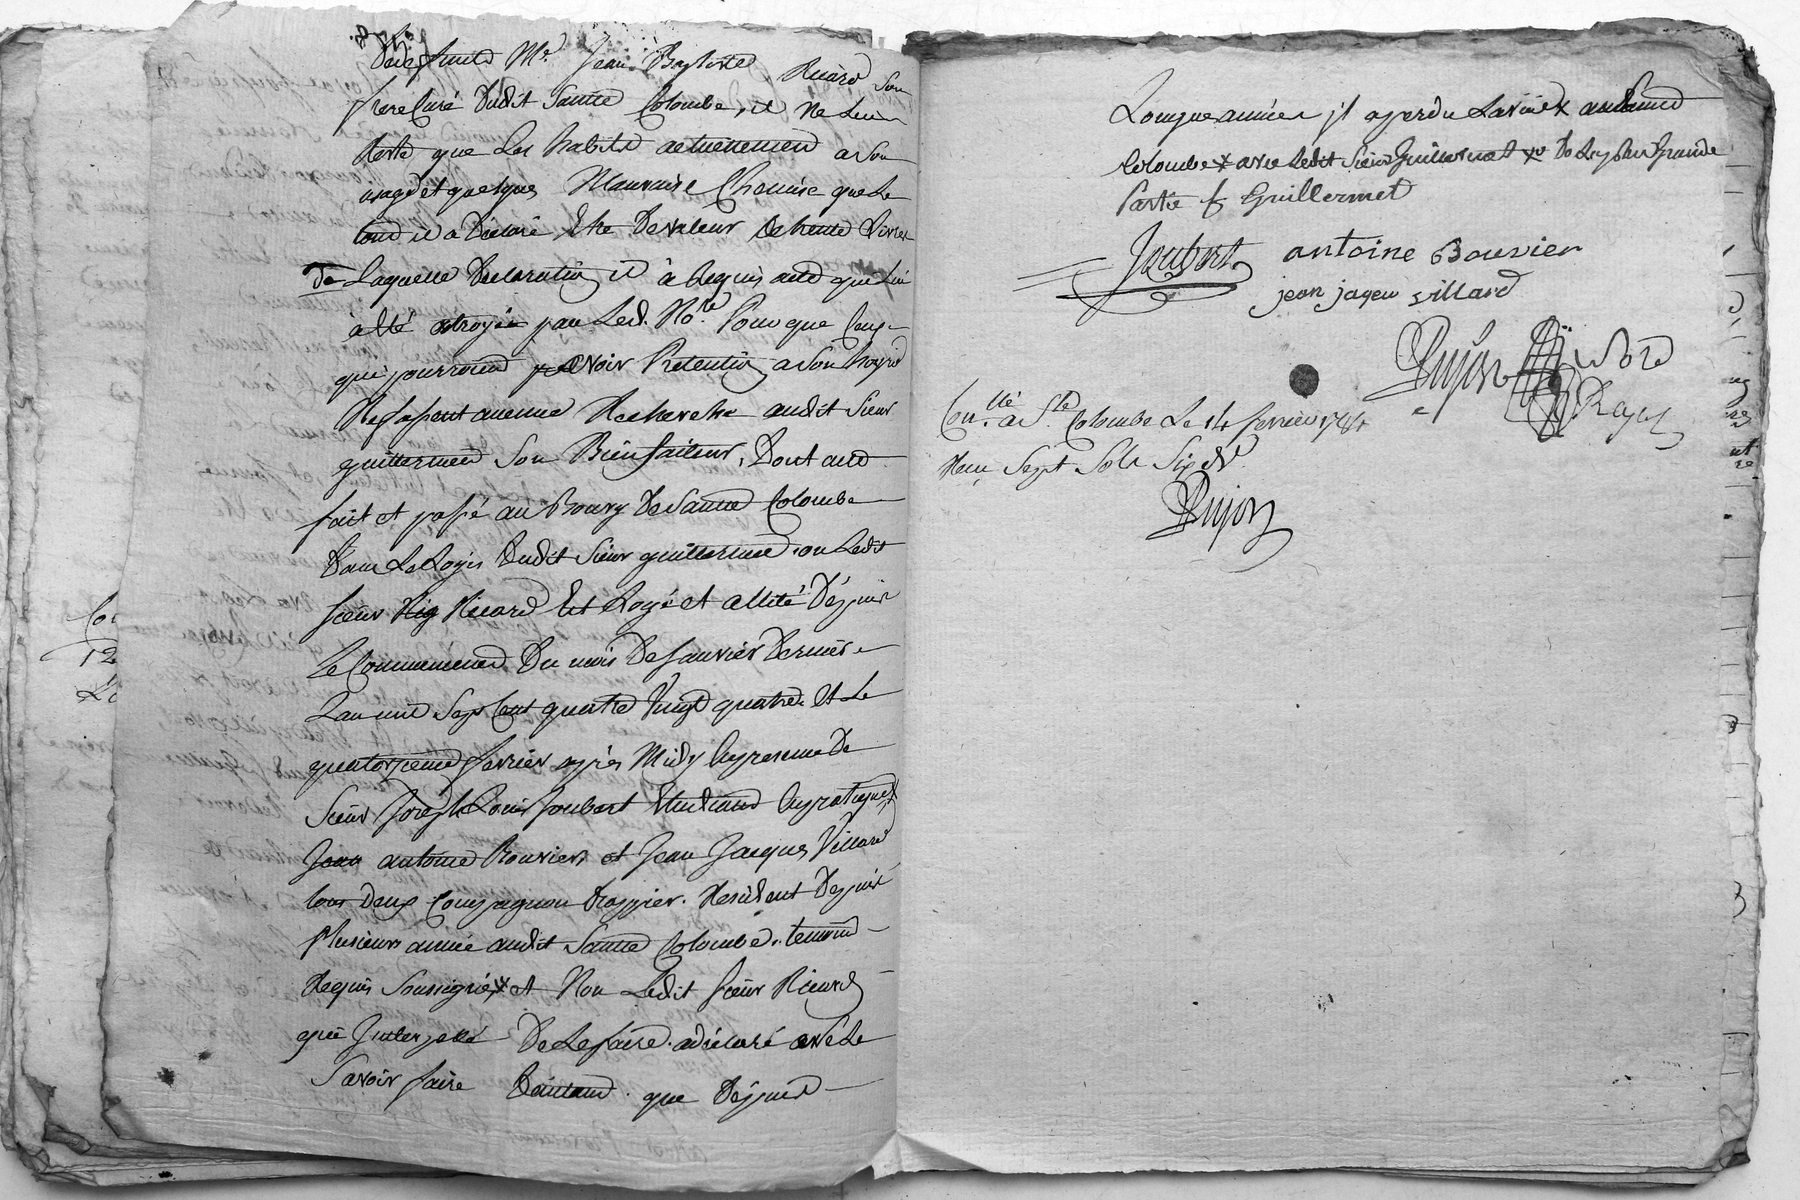 Dedeffunt Me. Jean Baptiste Ricard son
frere Curé dudit Sainte Colombe, et ne Leur
Reste que Les habits actuellement a son
usage et quelques Mauvaise Chemise que Le
tout il a Déclaré Etre De valeur de trente Livres
de Laquelle Declaration il à Requis acte que Lui
à été octroyée par Led. No.re Pour que Ceux
qui pourroient avoir Pretention a son hoirie
Ne fassent aucune Recherche audit Sieur
guillermet Son Bienfaiteur, Dont acte
fait et passé au Bourg De Sainte Colombe
Dans Le Logis Dudit Sieur guillermet, ou Ledit
sieur Ricard Est Logé et allité Dépuis
Le Commencement Du mois De Janvier Dernier
L'an mil Sept Cent quatre Vingt quatre. Et Le
quatorzieme fevrier après Midy En presence De
Sieur Joseph Louis Joubert Etudiant En pratique,
Jean antoine Bouvier et Jean Jacques Villard
tous deux Compagnon drappier. Residant Depuis
Plusieurs année audit Sainte Colombe. temoins
Requis Soussignés et Non Ledit sieur Ricard
qui Interpellé De Le faire. a déclaré avoir Le
Savoir faire D'autant que Dépuis
Longue année jl a perdu La vüe audit
Colombe avec Ledit Sieur Guillermet De Les plus Grande
Partie f Guillermet
Joubert antoine Bouvier
jean jaqeu villard
Dujon No.re Royal
Con.llé a S.te Colombe Le 14 fevrier 1784
Reçu Sept Sols Six d.
Dujon